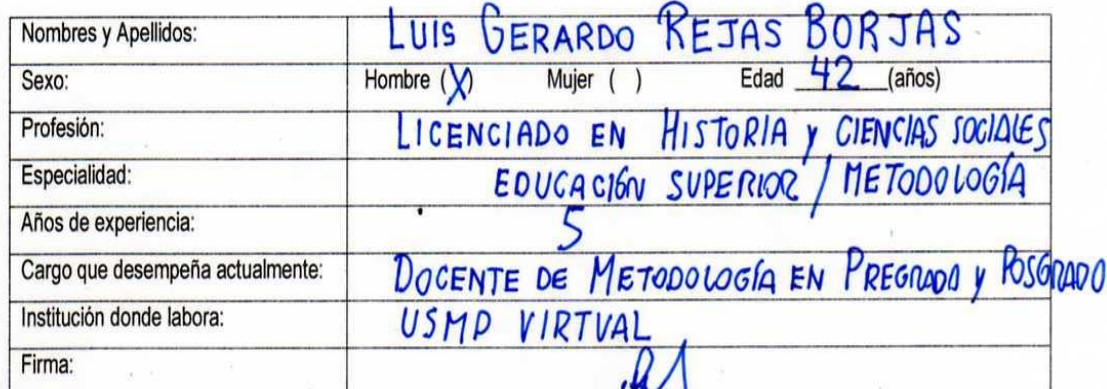 Nombres y Apellidos: LUIS GERARDO REJAS BORJAS
Sexo: Hombre (X) Mujer ( ) Edad 42 (años)
Profesión: LICENCIADO EN HISTORIA Y CIENCIAS SOCIALES
Especialidad: EDUCACIÓN SUPERIOR / METODOLOGÍA
Años de experiencia: 5
Cargo que desempeña actualmente: DOCENTE DE METODOLOGÍA EN PREGRADO Y POSGRADO
Institución donde labora: USMP VIRTUAL
Firma: